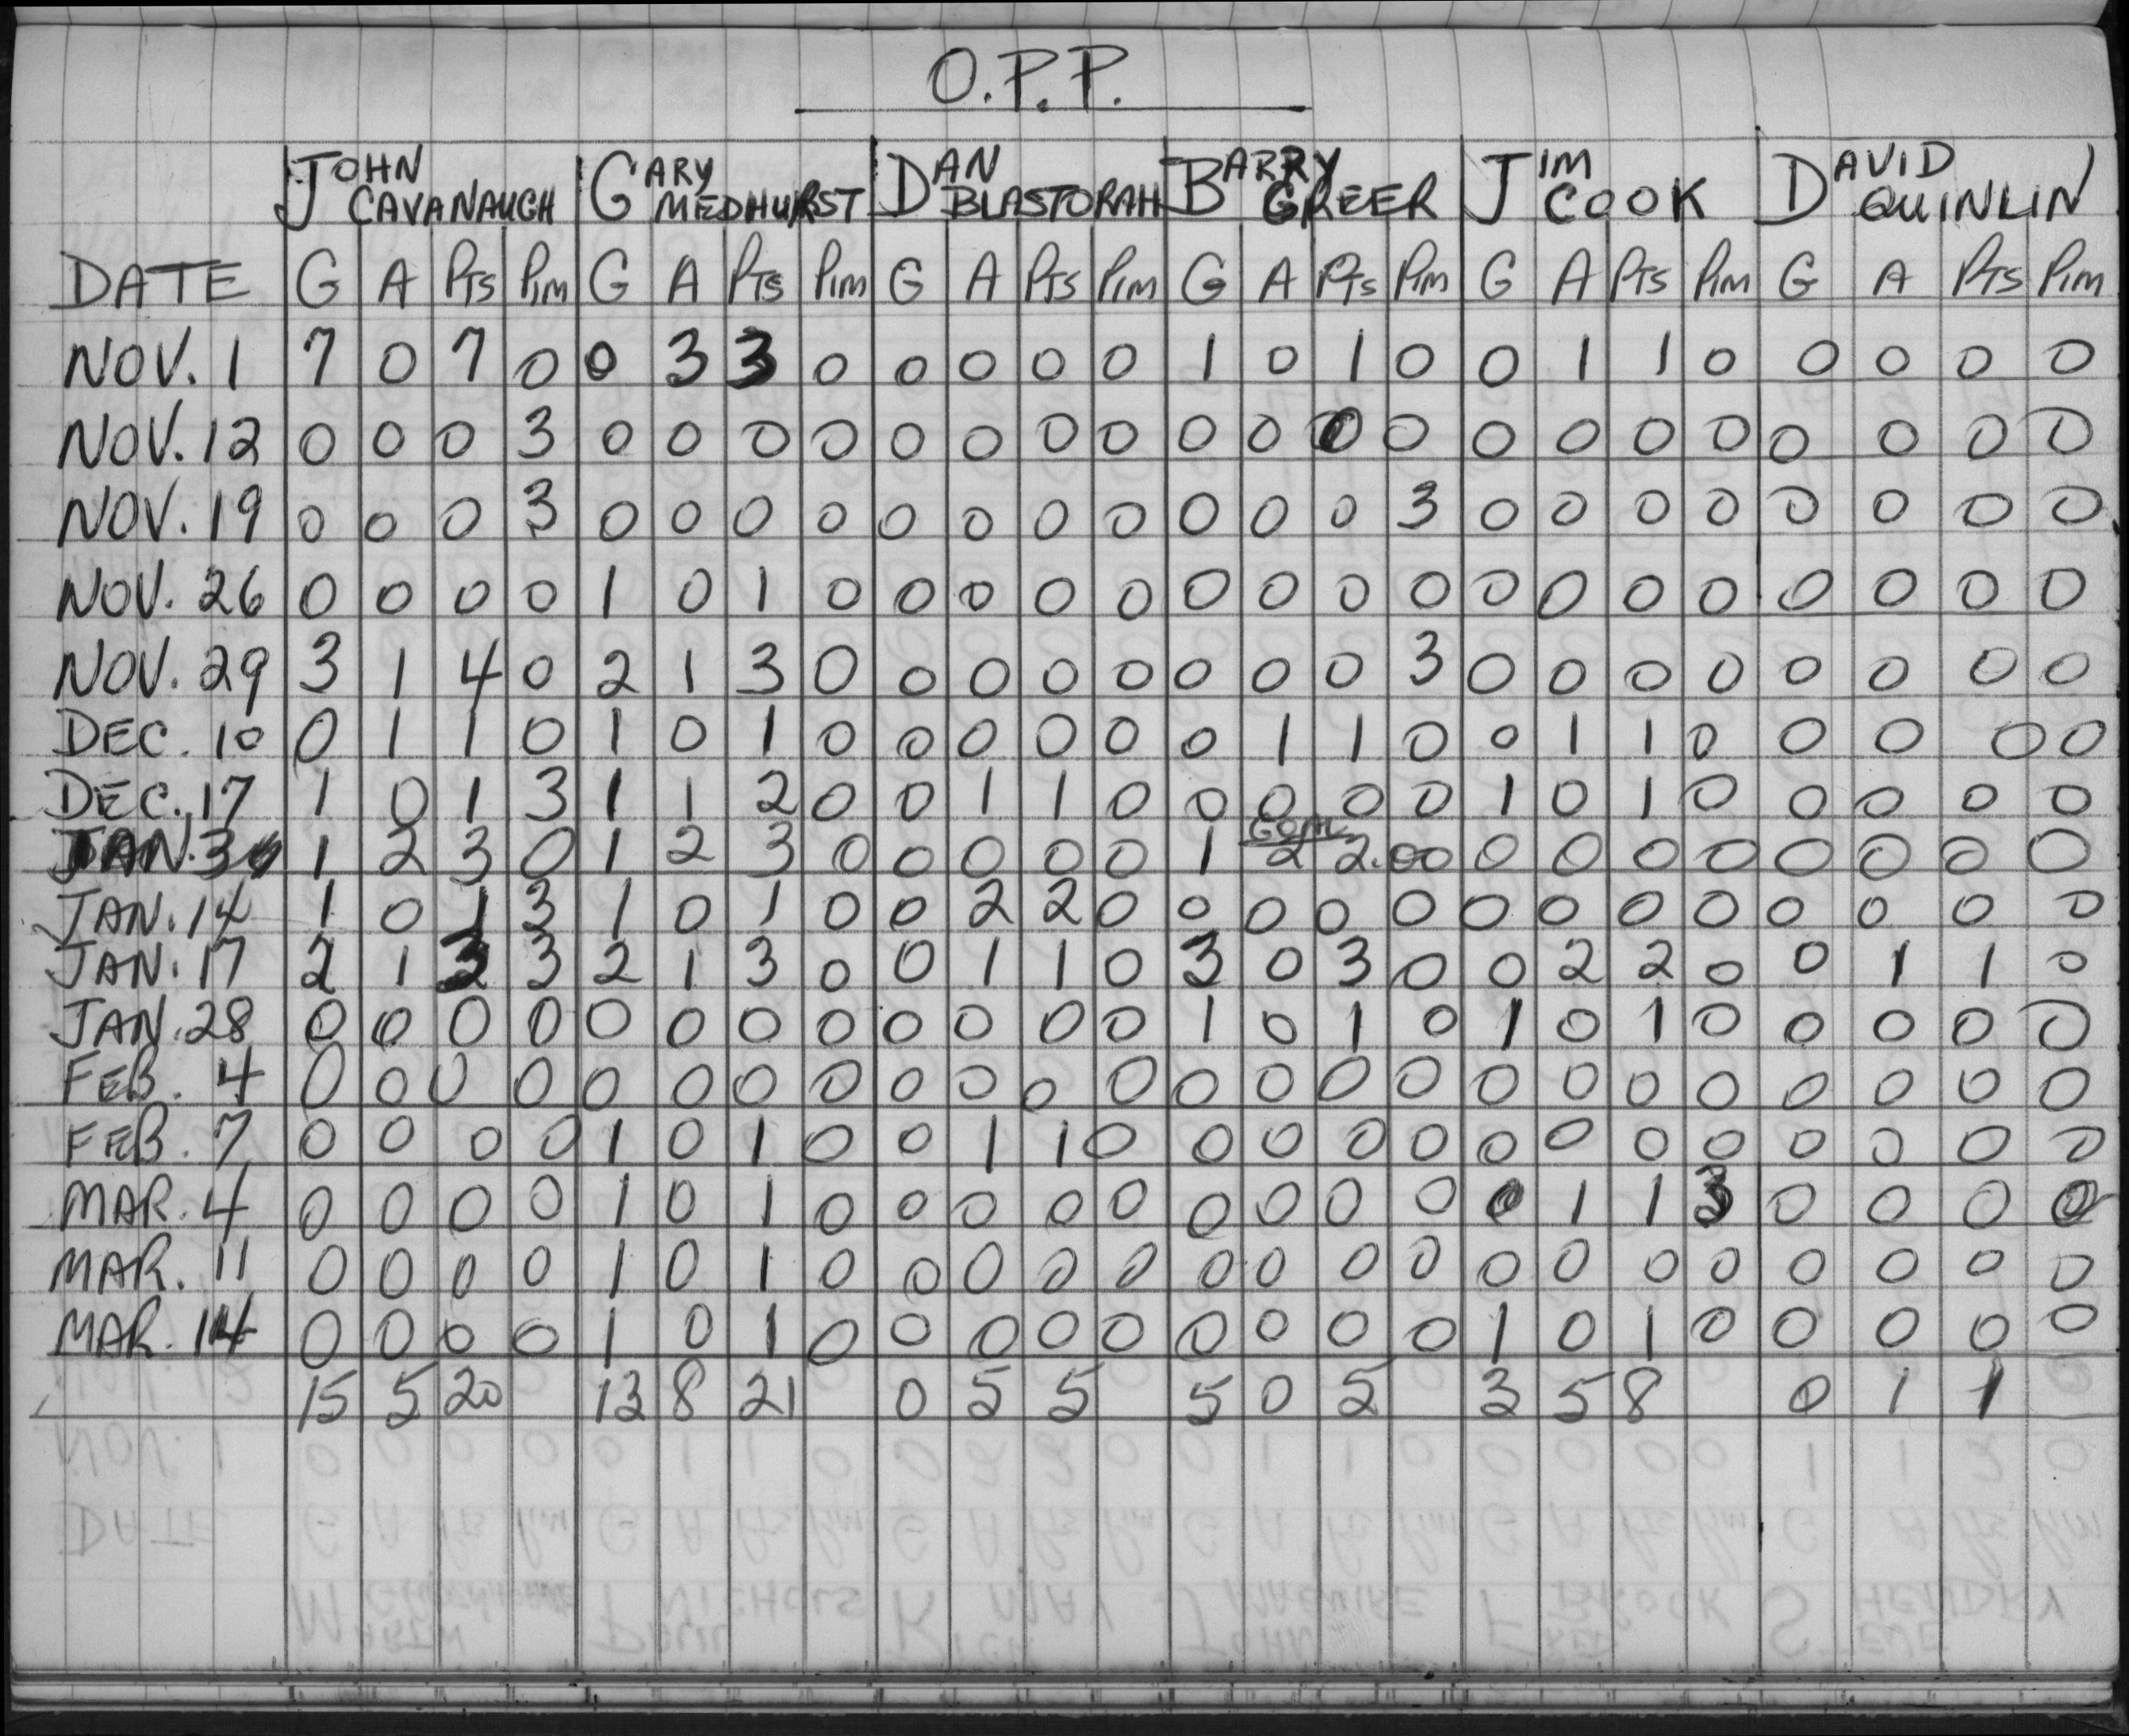 O.P.P.
JOHN CAVANAUGH GARY MEDHURST DAN BLASTORAH BARRY GREER JIM COOK DAVID QUINLIN
DATE G A PTS PIM G A PTS PIM G A PTS PIM G A PTS PIM G A PTS PIM G A PTS PIM
NOV. 1 7 0 7 0 0 3 3 0 0 0 0 0 1 0 1 0 0 1 1 0 0 0 0 0
NOV. 12 0 0 0 3 0 0 0 0 0 0 0 0 0 0 0 0 0 0 0 0 0 0 0 0
NOV. 19 0 0 0 3 0 0 0 0 0 0 0 0 0 0 0 3 0 0 0 0 0 0 0 0
NOV. 26 0 0 0 0 1 0 1 0 0 0 0 0 0 0 0 0 0 0 0 0 0 0 0 0
NOV. 29 3 1 4 0 2 1 3 0 0 0 0 0 0 0 0 3 0 0 0 0 0 0 0 0
DEC. 10 0 1 1 0 1 0 1 0 0 0 0 0 0 1 1 0 0 1 1 0 0 0 0 0
DEC. 17 1 0 1 3 1 1 2 0 0 1 1 0 0 0 0 0 1 0 1 0 0 0 0 0
JAN. 3 1 2 3 0 1 2 3 0 0 0 0 0 1 2 2.00 0 0 0 0 0 0 0 0
JAN. 14 1 0 1 3 1 0 1 0 0 2 2 0 0 0 0 0 0 0 0 0 0 0 0 0
JAN. 17 2 1 3 3 2 1 3 0 0 1 1 0 3 0 3 0 0 2 2 0 0 1 1 0
JAN. 28 0 0 0 0 0 0 0 0 0 0 0 0 1 0 1 0 1 0 1 0 0 0 0 0
FEB. 4 0 0 0 0 0 0 0 0 0 0 0 0 0 0 0 0 0 0 0 0 0 0 0 0
FEB. 7 0 0 0 0 1 0 1 0 0 1 1 0 0 0 0 0 0 0 0 0 0 0 0 0
MAR. 4 0 0 0 0 1 0 1 0 0 0 0 0 0 0 0 0 0 1 1 3 0 0 0 0
MAR. 11 0 0 0 0 1 0 1 0 0 0 0 0 0 0 0 0 0 0 0 0 0 0 0 0
MAR. 14 0 0 0 0 1 0 1 0 0 0 0 0 0 0 0 0 1 0 1 0 0 0 0 0
15 5 20 13 8 21 0 5 5 5 0 5 3 5 8 0 1 1